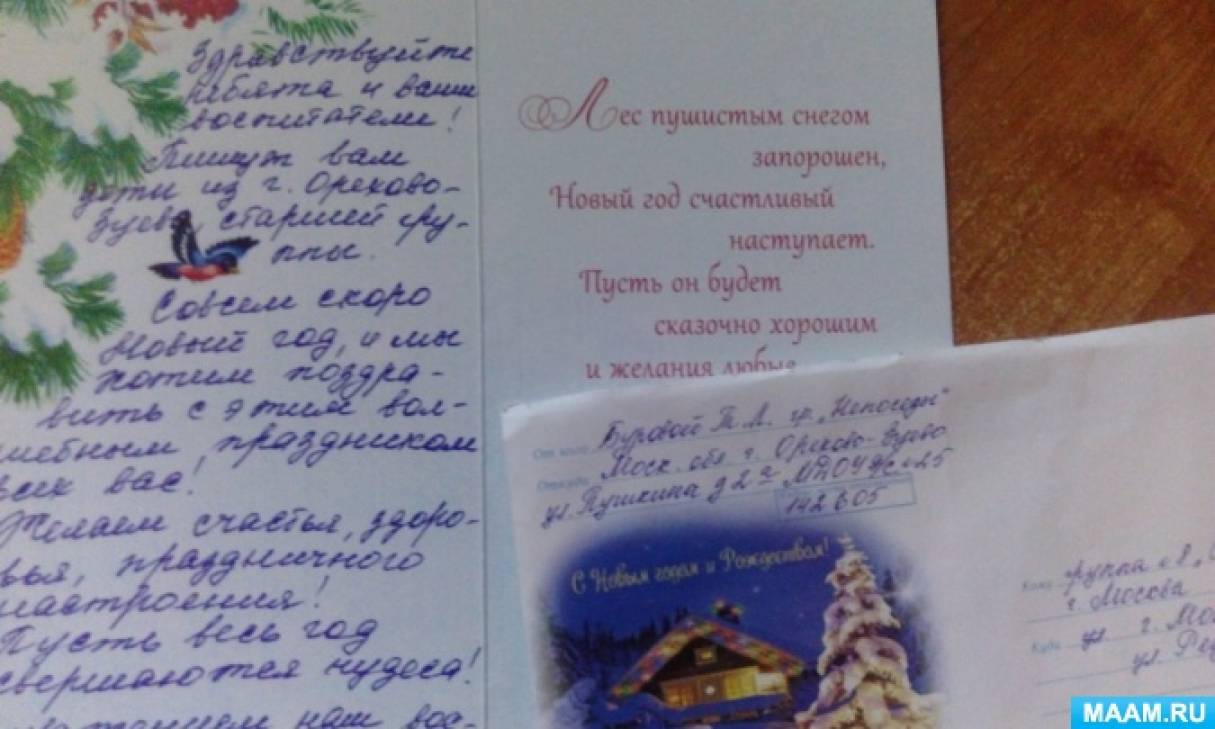 Здравствуйте
ребята и ваши
воспитатели!
Пишут вам
дети из г. Орехово-
Зуево, старшей гру-
ппы.
Совсем скоро
Новый год, и мы
хотим поздра-
вить с этим вол-
шебным праздником
всех вас!
Желаем счастья, здоро-
вья, праздничного
настроения!
Пусть весь год
свершаются чудеса!
наш вос-
Лес пушистым снегом
запорошен,
Новый год счастливый
наступает.
Пусть он будет
сказочно хорошим
и желания любые
От кого Буровой Т. А. гр. „Непоседы"
Откуда Моск. обл г. Орехово-Зуево
ул. Пушкина д 2а МДОУ №25
142605
С Новым годом и Рождеством!
Кому группа
г. Москва
Куда г. Мос
ул.
MAAM.RU